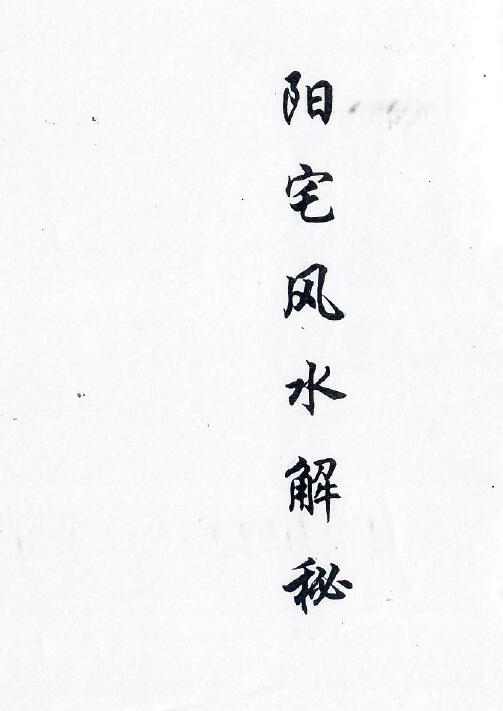 阳宅风水解秘